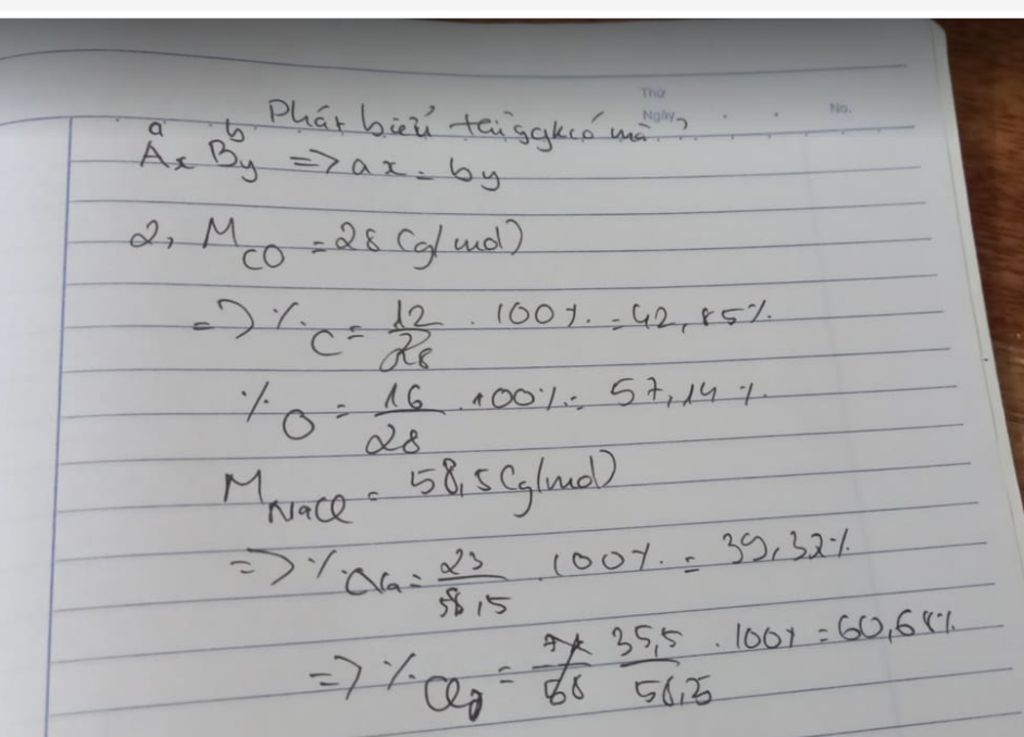 Thứ
Ngày No.
Phát biểu tại sgk có mà?
a b
AxBy => ax = by
2, M CO = 28 (g/mol)
=> % C = 12/28 . 100% = 42,85%
% O = 16/28 . 100% = 57,14%
M NaCl = 58,5 (g/mol)
=> % Na = 23/58,5 . 100% = 39,32%
=> % Cl = 35,5/58,5 . 100% = 60,68%